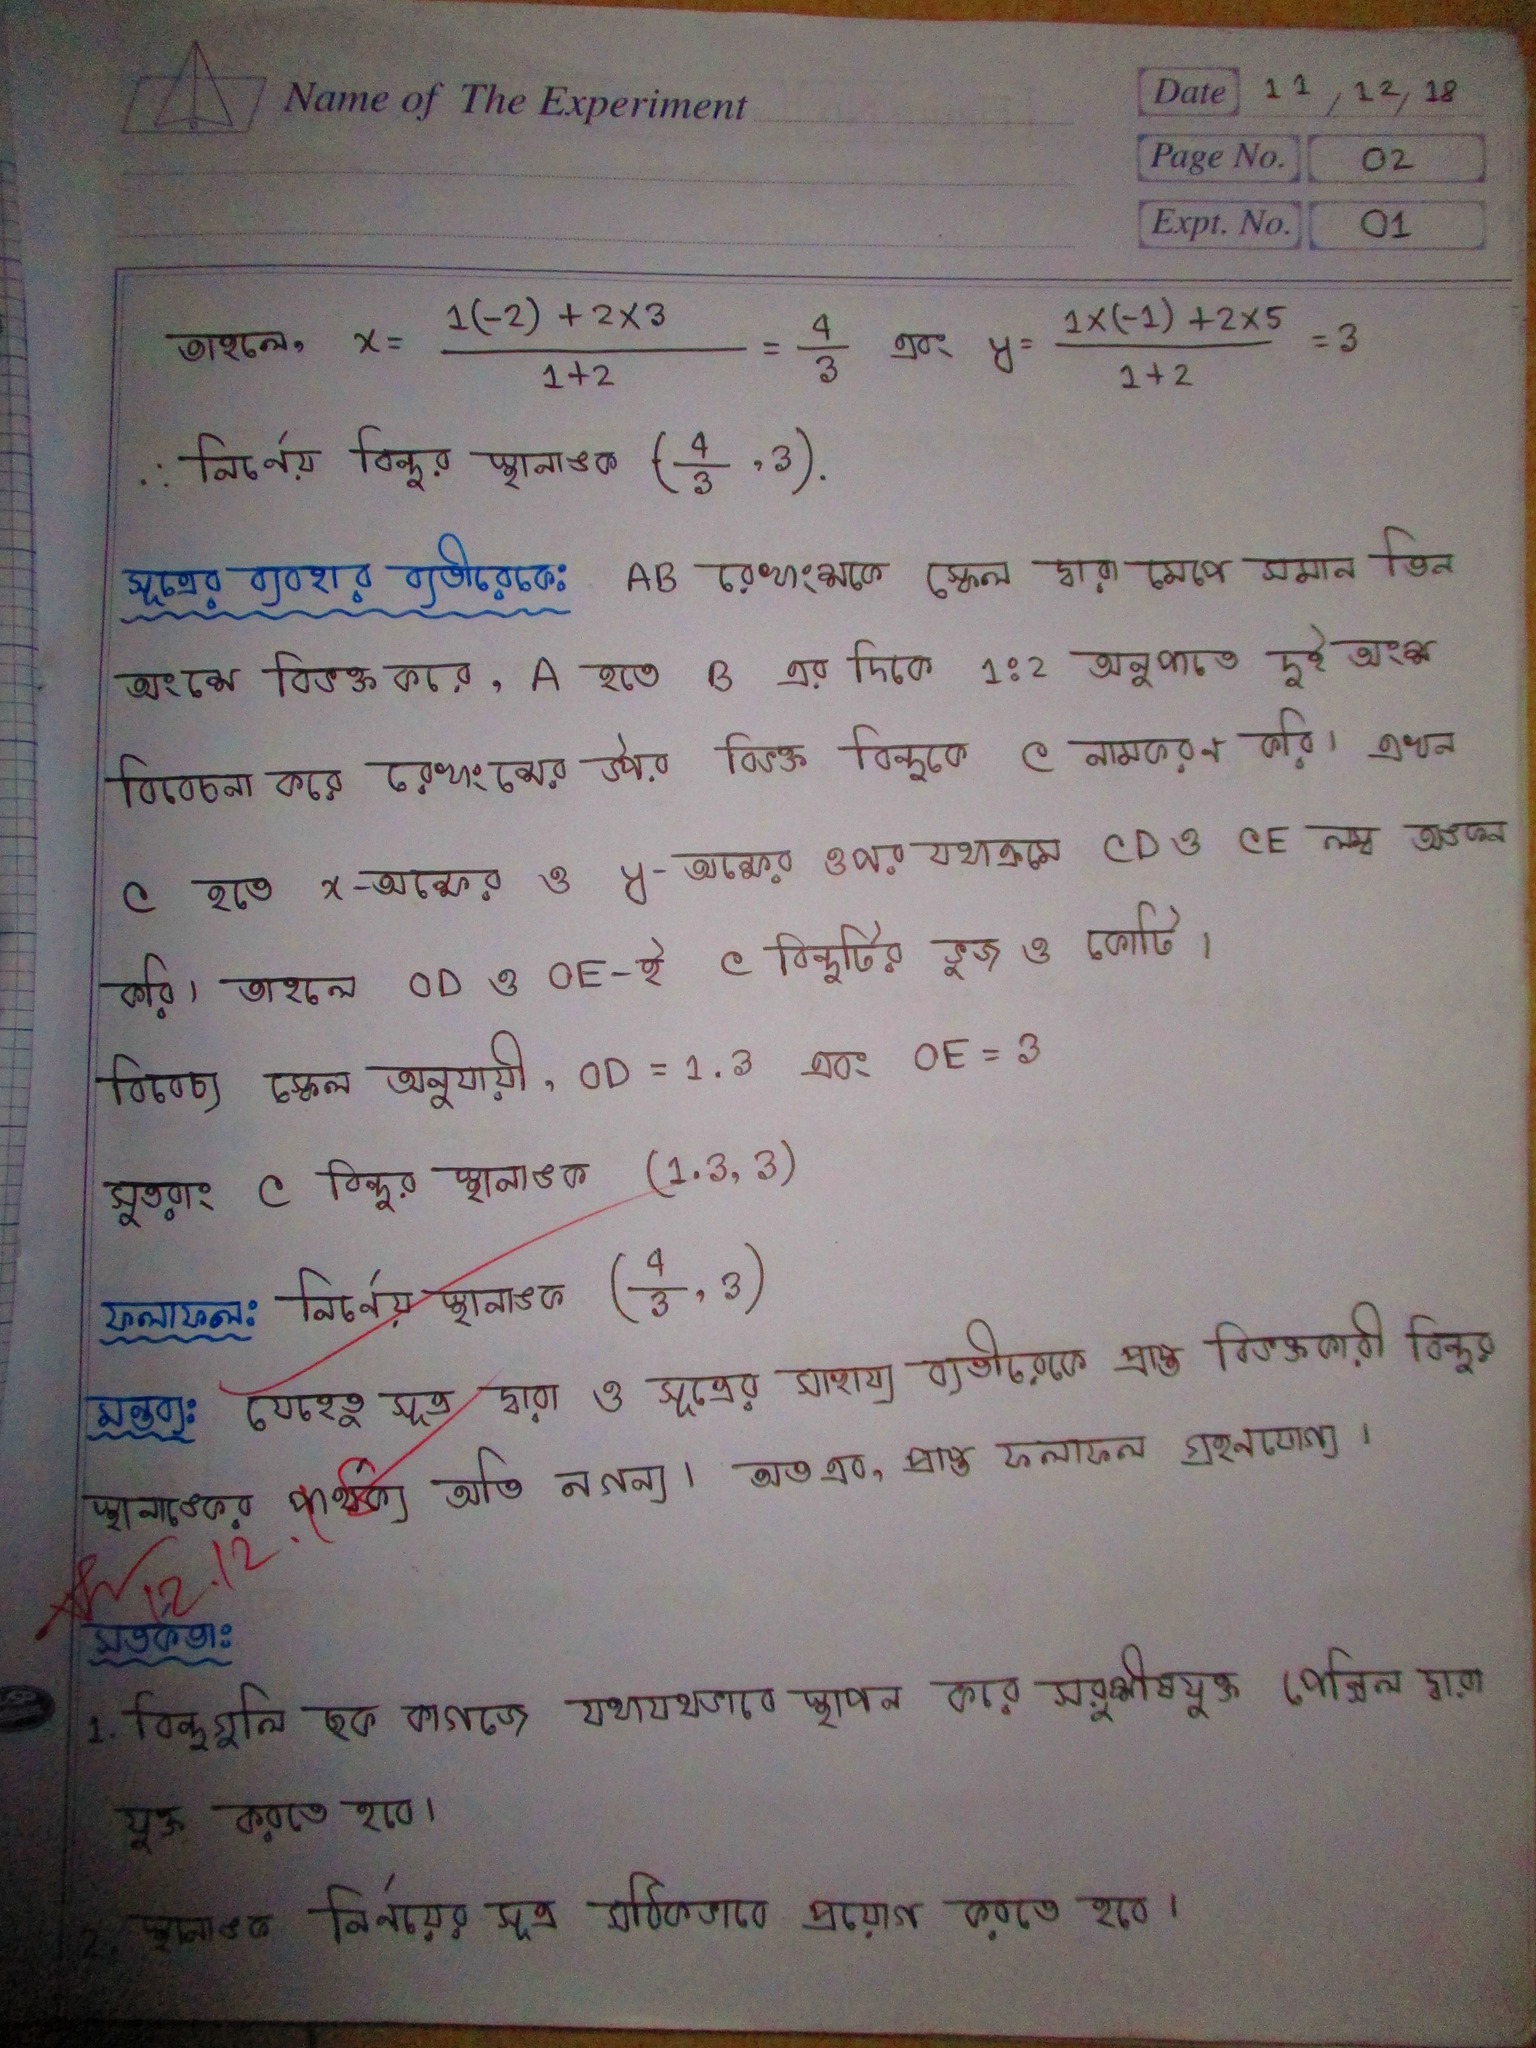 Name of The Experiment
Date 11/12/18
Page No. 02
Expt. No. 01
তাহলে, x = (1(-2) + 2×3)/(1+2) = 4/3 এবং y = (1×(-1) + 2×5)/(1+2) = 3
∴ নির্ণেয় বিন্দুর স্থানাঙ্ক (4/3, 3).
সূত্রের ব্যবহার ব্যতীরেকেঃ AB রেখাংশকে স্কেল দ্বারা মেপে সমান তিন
অংশে বিভক্ত করে, A হতে B এর দিকে 1:2 অনুপাতে দুই অংশ
বিবেচনা করে রেখাংশের উপর বিভক্ত বিন্দুকে C নামকরণ করি। এখন
C হতে x-অক্ষের ও y-অক্ষের ওপর যথাক্রমে CD ও CE লম্ব অঙ্কন
করি। তাহলে OD ও OE-ই C বিন্দুটির ভুজ ও কোটি।
বিবেচ্য স্কেল অনুযায়ী, OD = 1.3 এবং OE = 3
সুতরাং C বিন্দুর স্থানাঙ্ক (1.3, 3)
ফলাফলঃ নির্ণেয় স্থানাঙ্ক (4/3, 3)
মন্তব্যঃ যেহেতু সূত্র দ্বারা ও সূত্রের সাহায্য ব্যতীরেকে প্রাপ্ত বিভক্তকারী বিন্দুর
স্থানাঙ্কের পার্থক্য অতি নগন্য। অতএব, প্রাপ্ত ফলাফল গ্রহনযোগ্য।
12.12.
সতর্কতাঃ
1. বিন্দুগুলি ছক কাগজে যথাযথভাবে স্থাপন করে সরুশীষযুক্ত পেন্সিল দ্বারা
যুক্ত করতে হবে।
2. স্থানাঙ্ক নির্ণয়ের সূত্র সঠিকভাবে প্রয়োগ করতে হবে।